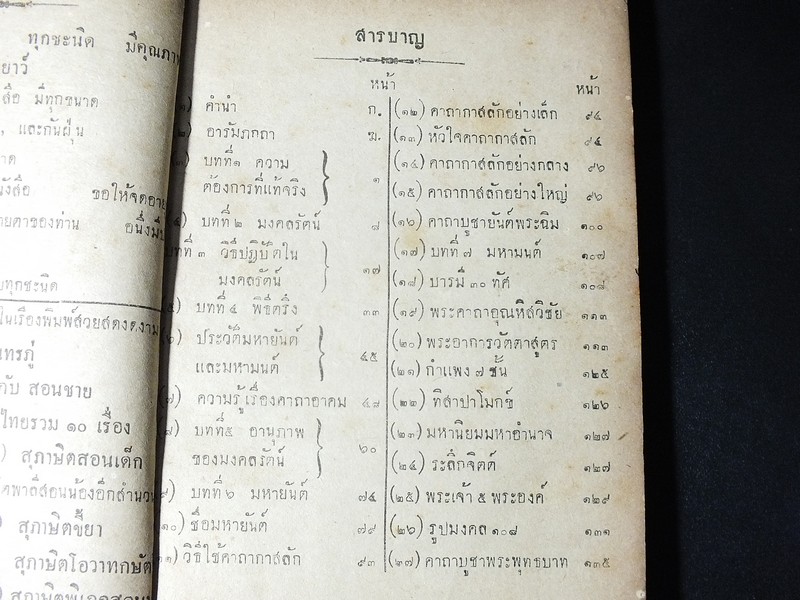 ทุกชะนิด มีคุณภาพ
ยาว์
มีทุกขนาด
และกันฝุ่น
ขอให้จดอาย
ยตาของท่าน
ทุกชะนิด
ในเรื่องพิมพ์สวยสดงดงาม
สอนชาย
ไทยรวม ๑๐ เรื่อง
สุภาษิตสอนเด็ก
สุภาษิตขี้ยา
สุภาษิตโอวาทกษัตริ
สารบาญ
หน้า
คำนำ ก.
อารัมภกถา ฆ.
บทที่๑ ความ
ต้องการที่แท้จริง ๑
บทที่ ๒ มงคลรัตน์ ๘
บทที่ ๓ วิธีปฏิบัติใน
มงคลรัตน์ ๑๗
บทที่ ๔ พิธีตรึง ๓๓
ประวัติมหายันต์
และมหามนต์ ๔๕
ความรู้เรื่องคาถาอาคม ๔๘
บทที่๕ อานุภาพ
ของมงคลรัตน์ ๖๐
บทที่ ๖ มหายันต์ ๗๔
๑๐) ชื่อมหายันต์ ๗๙
๑๑) วิธีใช้คาถากาสลัก ๙๓
หน้า
(๑๒) คาถากาสลักอย่างเล็ก ๙๔
(๑๓) หัวใจคาถากาสลัก ๙๔
(๑๔) คาถากาสลักอย่างกลาง ๙๖
(๑๕) คาถากาสลักอย่างใหญ่ ๙๖
(๑๖) คาถาบูชายันต์พระฉิม ๑๐๐
(๑๗) บทที่ ๗ มหามนต์ ๑๐๗
(๑๘) บารมี ๓๐ ทัศ ๑๐๘
(๑๙) พระคาถาอุณหิสวิชัย ๑๑๓
(๒๐) พระอาการวัตตาสูตร ๑๑๓
(๒๑) กำแพง ๗ ชั้น ๑๒๕
(๒๒) ทิสาปาโมกข์ ๑๒๖
(๒๓) มหานิยมมหาอำนาจ ๑๒๗
(๒๔) ระลึกจิตต์ ๑๒๗
(๒๕) พระเจ้า ๕ พระองค์ ๑๒๙
(๒๖) รูปมงคล ๑๐๘ ๑๓๑
(๒๗) คาถาบูชาพระพุทธบาท ๑๓๕